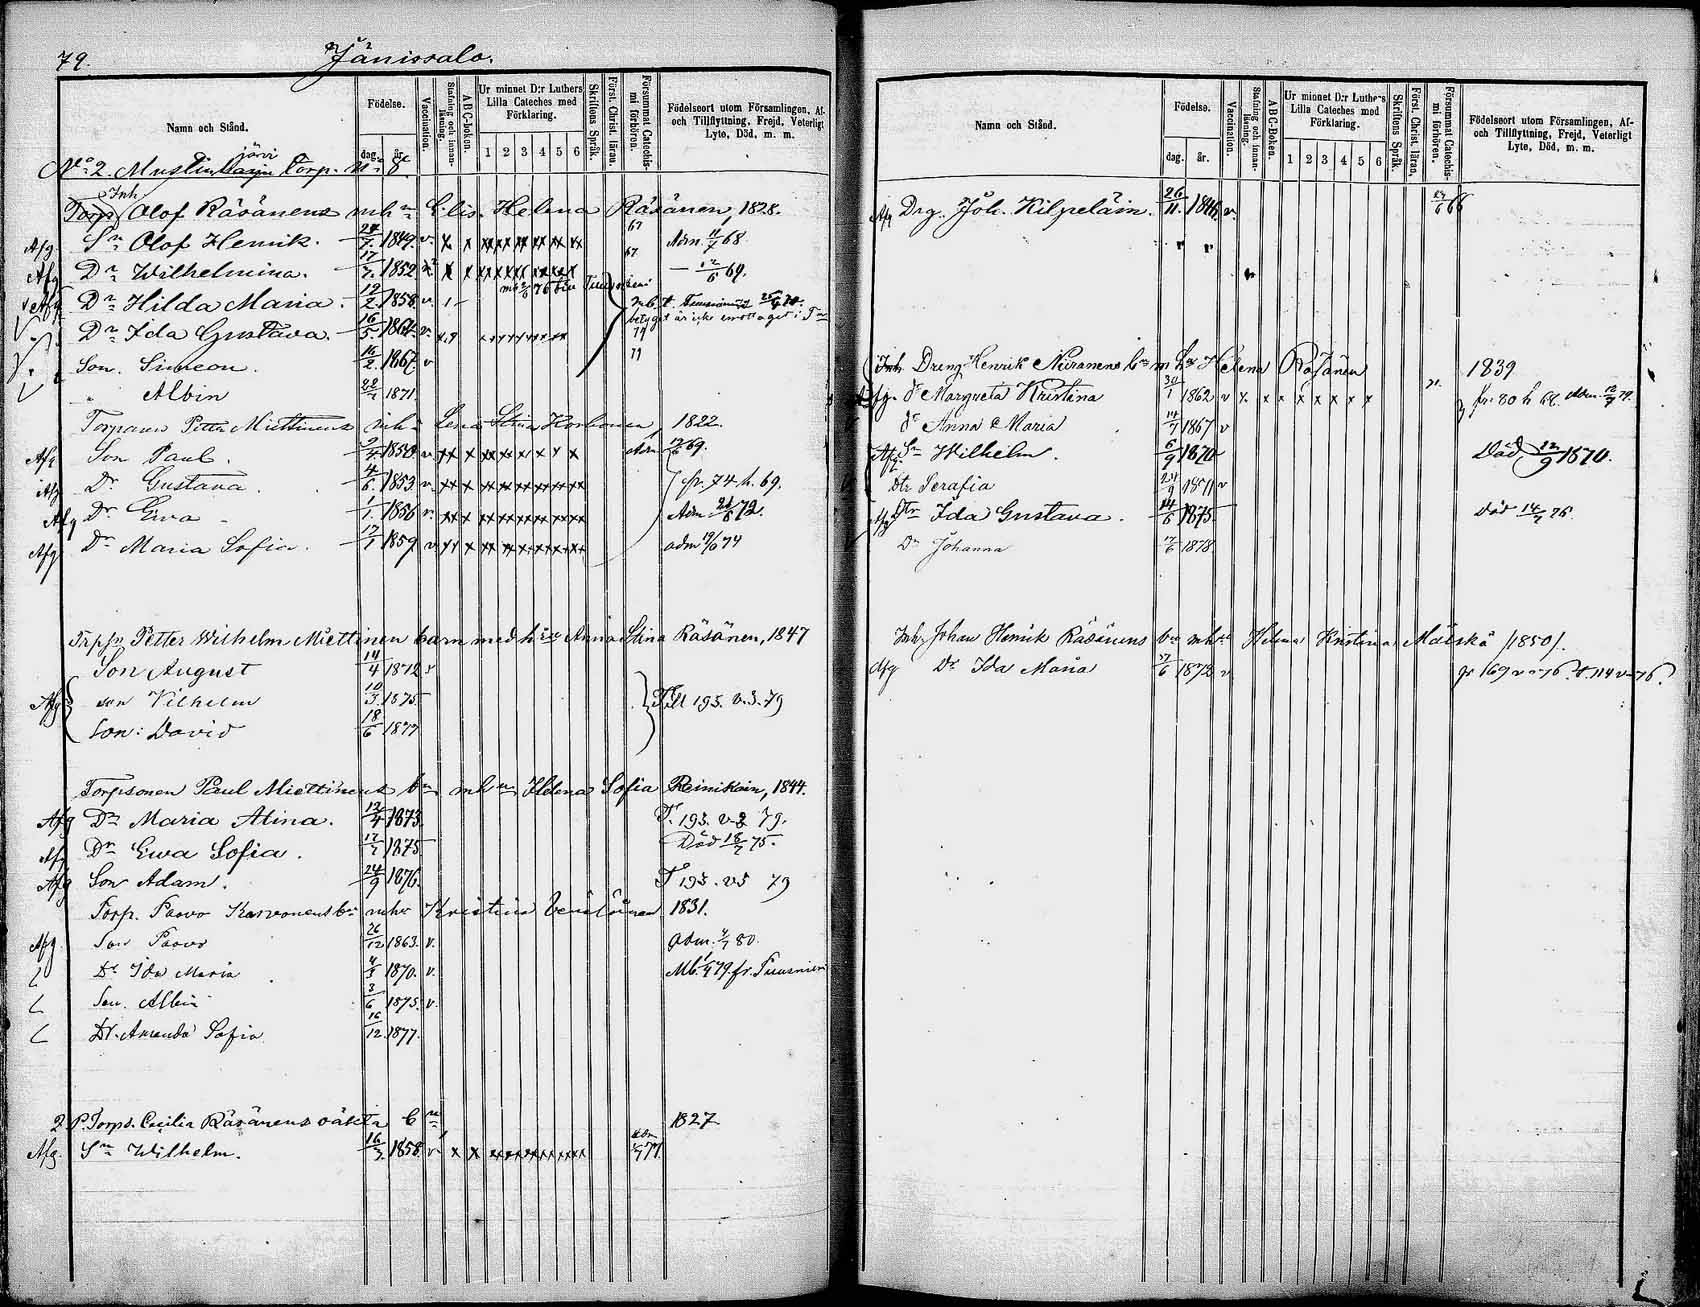 79.
Jänissalo.
Namn och Stånd.
Födelse.
dag.
år.
Vaccination.
Stafning och innanläsning.
ABC-boken.
Ur minnet D:r Luthers Lilla Cateches med Förklaring.
1 2 3 4 5 6
Skriftens Språk.
Först. Christ. läran.
Försummat Catechismi förhören.
Födelseort utom Församlingen, Af- och Tillflyttning, Frejd, Veterligt Lyte, Död, m. m.
N:o 2. Mustin järvi Torp. N:o 8.
Inh
Torp. Olof Räsänens mhu Elis. Helena Räsänen, 1828.
67
Afg. Sn Olof Henrik. 24/7. 1849. v. x x xx xx xx xx xx xx Adm. 11/7 68.
67
Afg Dr Wilhelmina. 17/7. 1852 x x xx xx xx xx xx xx — 12/6 69.
Afg Dr Hilda Maria 12/2. 1858. v.
Dr Ida Gustava. 16/5. 1864. v. 79
betyget är icke emottaget i
Son. Simeon. 16/2. 1867. v 79
" Albin 28/7 1871.
Torparen Petter Miettinens mhu Lena Stina Korhonen, 1822.
Afg Son Paul. 9/4. 1850 v xx x xx xx x x x x Adm 69.
Afg Dr Gustava. 4/6. 1853. v. xx x xx xx xx xx xx xx fr. 74 h. 69.
Afg Dr Ewa 1/1. 1856 v. xx x xx xx xx xx xx xx Adm 21/6 72.
Afg Dr Maria Sofia. 17/1 1859 v xx x xx xx xx xx xx xx adm 19/6 74
Trpsn Petter Wilhelm Miettinen barn med hu Anna Stina Räsänen, 1847
Son August 14/4 1872 v
Afg son Vilhelm 10/3. 1875. Till 193. v. 3. 79
Son: David 18/6 1877
Torpsonen Paul Miettinens bn mhu Helena Sofia Reinikain, 1844.
Afg Dr Maria Alina. 12/4 1873. T. 193. v 3 79.
Afg Dr Ewa Sofia. 17/7 1875 Död 18/7 75.
Afg Son Adam. 24/9 1876. T 193. v 3 79
Torp. Paavo Karvonens bn mhu Kristina 1831.
Afg Son Paavo 26/12 1863. v. Adm. 4/7 80.
Dr Ida Maria 4/3 1870. v. Mb. 1/4 79 fr. Tuusniemi
Son. Albin 3/6 1875. v.
Dr. Amanda Sofia 16/12. 1877.
2 P. Torpd. Cecilia Räsänens oäkta bn 1827
Afg Sn Wilhelm. 16/3. 1858 v x x xx xx xx xx xx xx Adm 77.
Namn och Stånd.
Födelse.
dag.
år.
Vaccination.
Stafning och innanläsning.
ABC-Boken.
Ur minnet D:r Luthers Lilla Cateches med Förklaring.
1 2 3 4 5 6
Skriftens Språk.
Först. Christ. läran.
Försummat Catechismi förhören.
Födelseort utom Församlingen, Af- och Tillflyttning, Frejd, Veterligt Lyte, Död, m. m.
Afg Drg. Joh. Kilpeläin. 26/11. 1846. v. 66
Inh. Dreng Henrik Niiranens bn m hu Helena Räsänen 1839
Afg. dr Margreta Kristina 30/1 1862 v x x x x x x x x fr. 80 h 69. Adm. 12/7 79.
dr Anna Maria 14/7 1867 v
Afg Sn Wilhelm. 6/9 1870 Död 12/9 1870.
Dtr Serafia 24/9 1871 v
Afg Dtr Ida Gustava. 14/6 1875 Död 14/7 76
Dr Johanna 17/6 1878.
Inh. Johan Henrik Räsänens bn mhu Helena Kristina Mälskä /1850/.
Afg Dr Ida Maria 27/6 1872 v fr 169 v 76. t. 114 v 76.